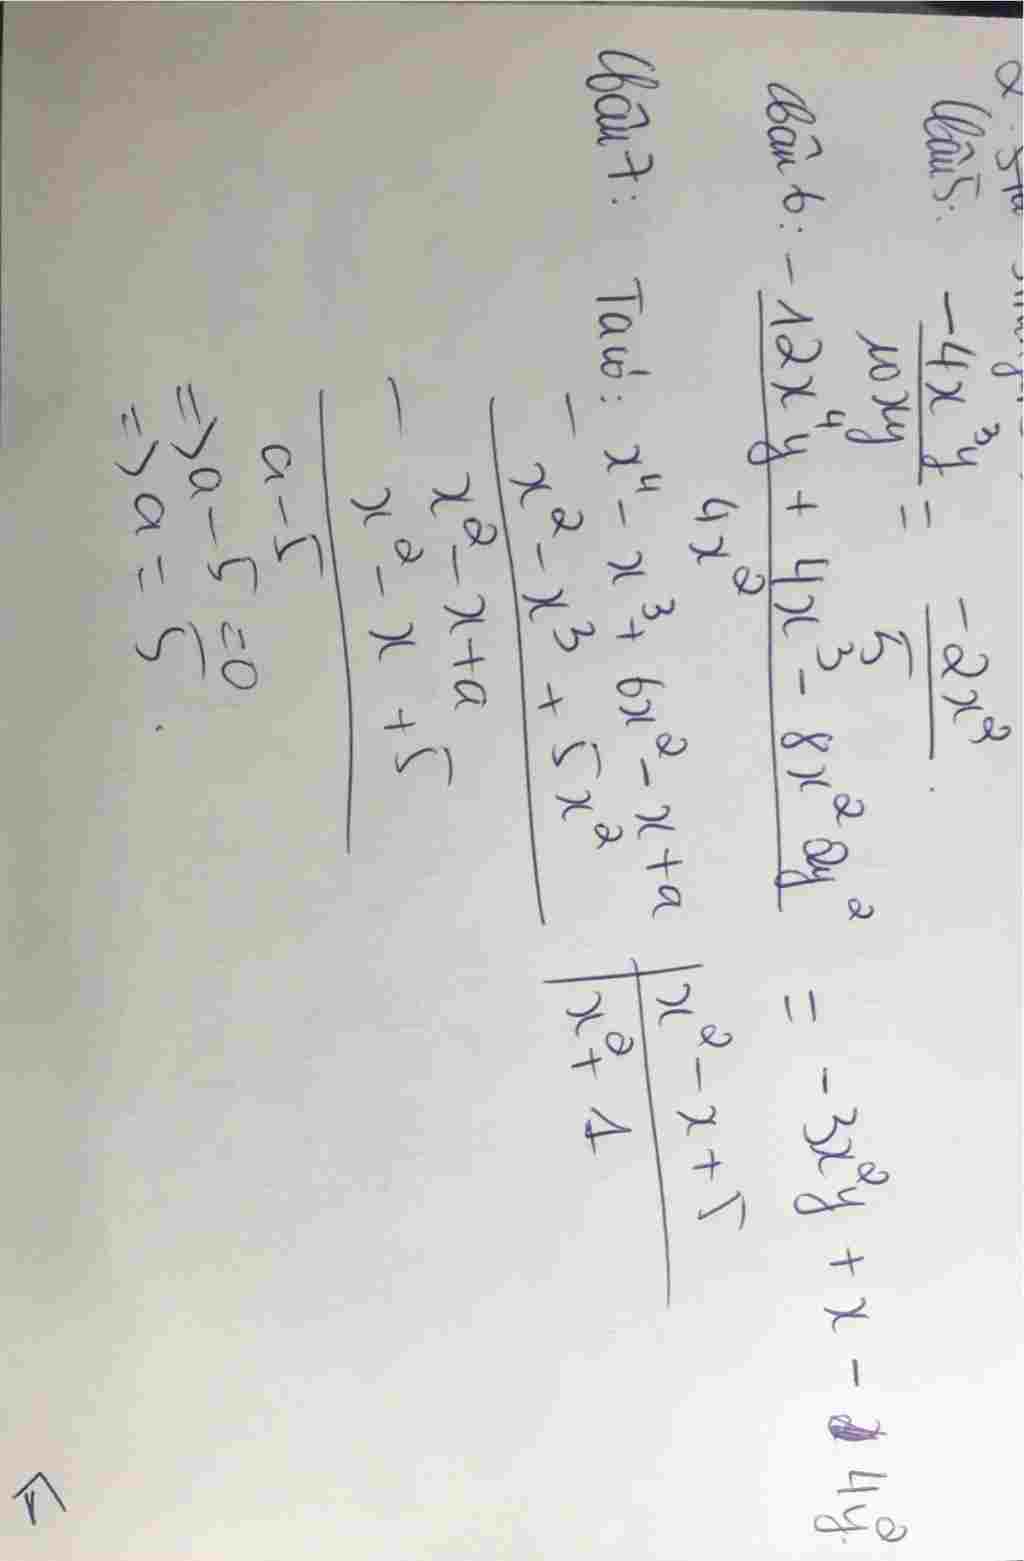 Câu 5: -4x³y / 10xy = -2x² / 5.
Câu 6: -12x⁴y + 4x³ - 8x²2y² / 4x² = -3x²y + x - 4y²
Câu 7: Ta có: x⁴ - x³ + 6x² - x + a | x² - x + 5
- x² - x³ + 5x² | x² + 1
x² - x + a
- x² - x + 5
a - 5
=> a - 5 = 0
=> a = 5.